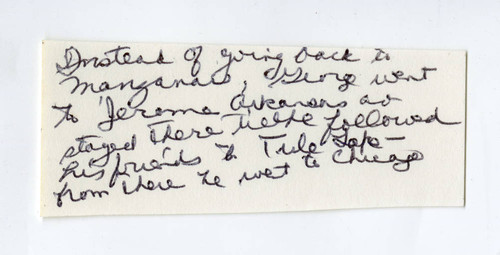 Instead of going back to
Manzanar, George went
to Jerome Arkansas and
stayed there till he followed
his friends to Tule Lake -
from there he went to Chicago